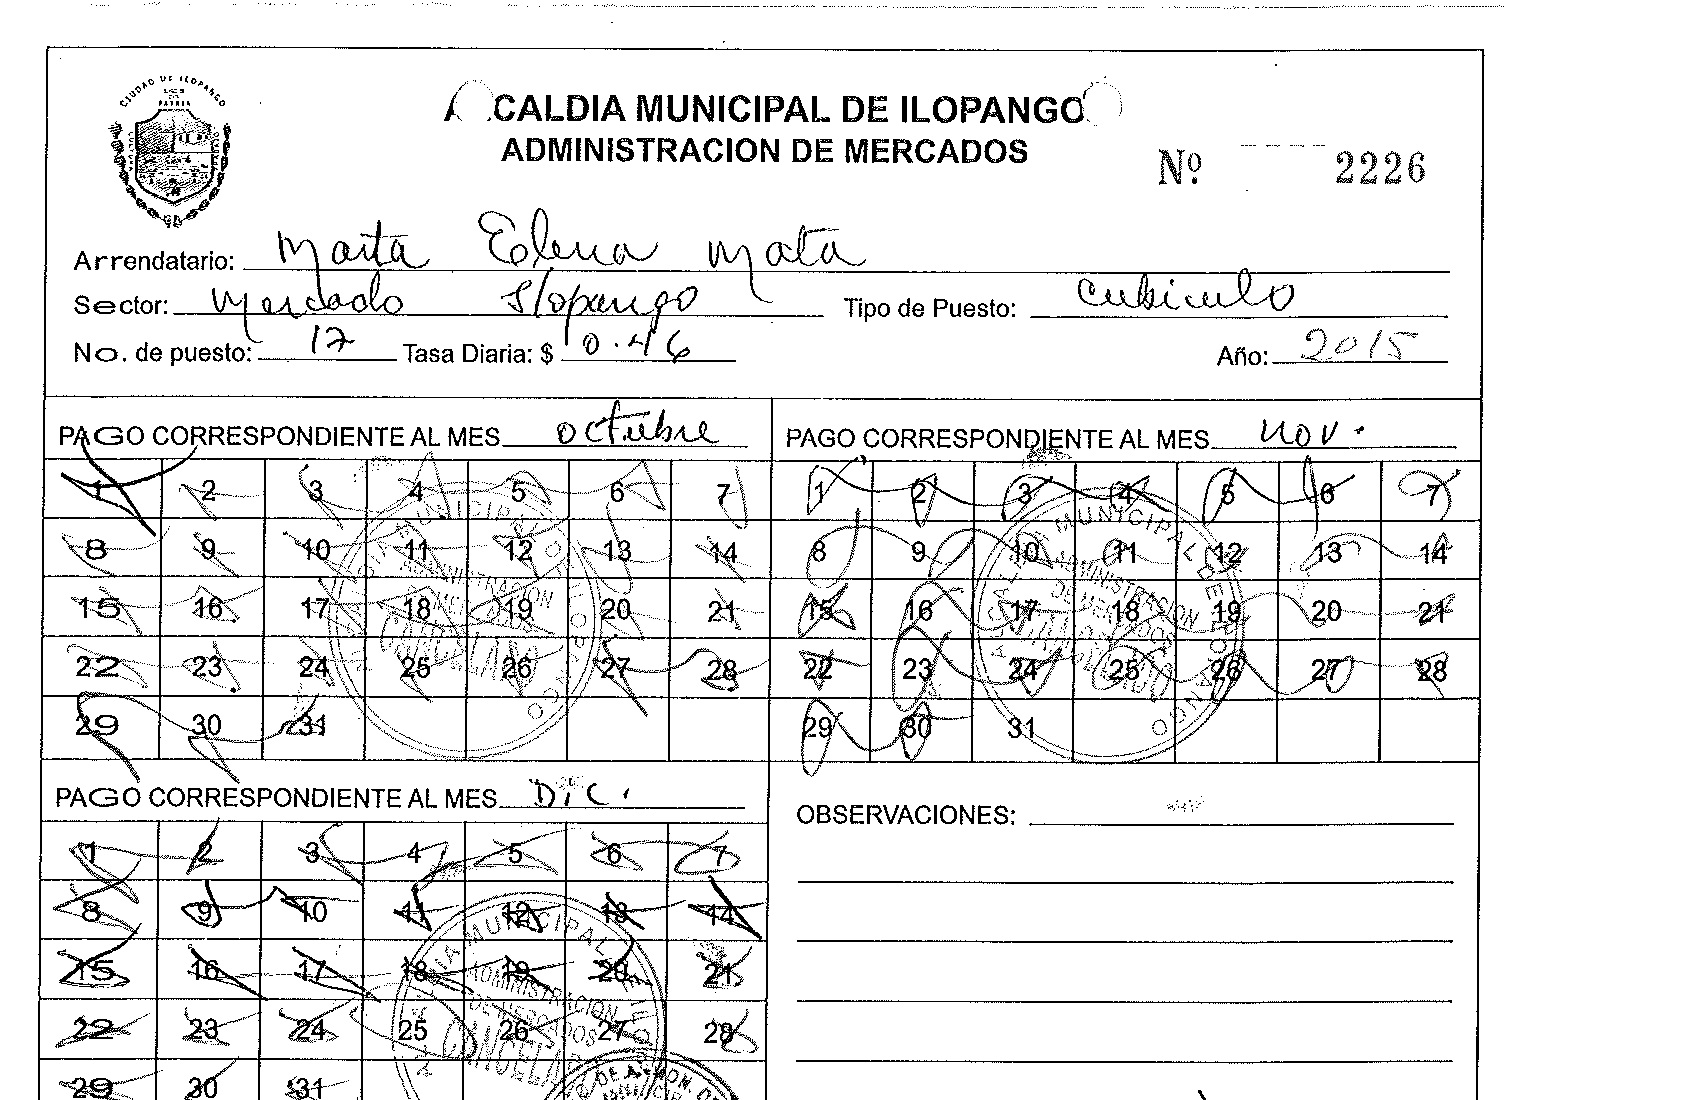 CIUDAD DE ILOPANGO
PATRIA
CALDIA MUNICIPAL DE ILOPANGO
ADMINISTRACION DE MERCADOS
Nº 2226
Arrendatario: Marta Elena Mata
Sector: Mercado Ilopango Tipo de Puesto: Cubiculo
No. de puesto: 17 Tasa Diaria: $ 0.46 Año: 2015
PAGO CORRESPONDIENTE AL MES octubre
1 2 3 4 5 6 7
8 9 10 11 12 13 14
15 16 17 18 19 20 21
22 23 24 25 26 27 28
29 30 31
PAGO CORRESPONDIENTE AL MES Nov.
1 2 3 4 5 6 7
8 9 10 11 12 13 14
15 16 17 18 19 20 21
22 23 24 25 26 27 28
29 30 31
PAGO CORRESPONDIENTE AL MES Dic.
1 2 3 4 5 6 7
8 9 10 11 12 13 14
15 16 17 18 19 20 21
22 23 24 25 26 27 28
29 30 31
OBSERVACIONES:
MUNICIPAL
ADMINISTRACION
CANCELADO
ALCALDIA MUNICIPAL DE ILOPANGO
ADMINISTRACION
DE MERCADOS
CANCELADO
ALCALDIA MUNICIPAL DE ILOPANGO
ADMINISTRACION
DE MERCADOS
CANCELADO